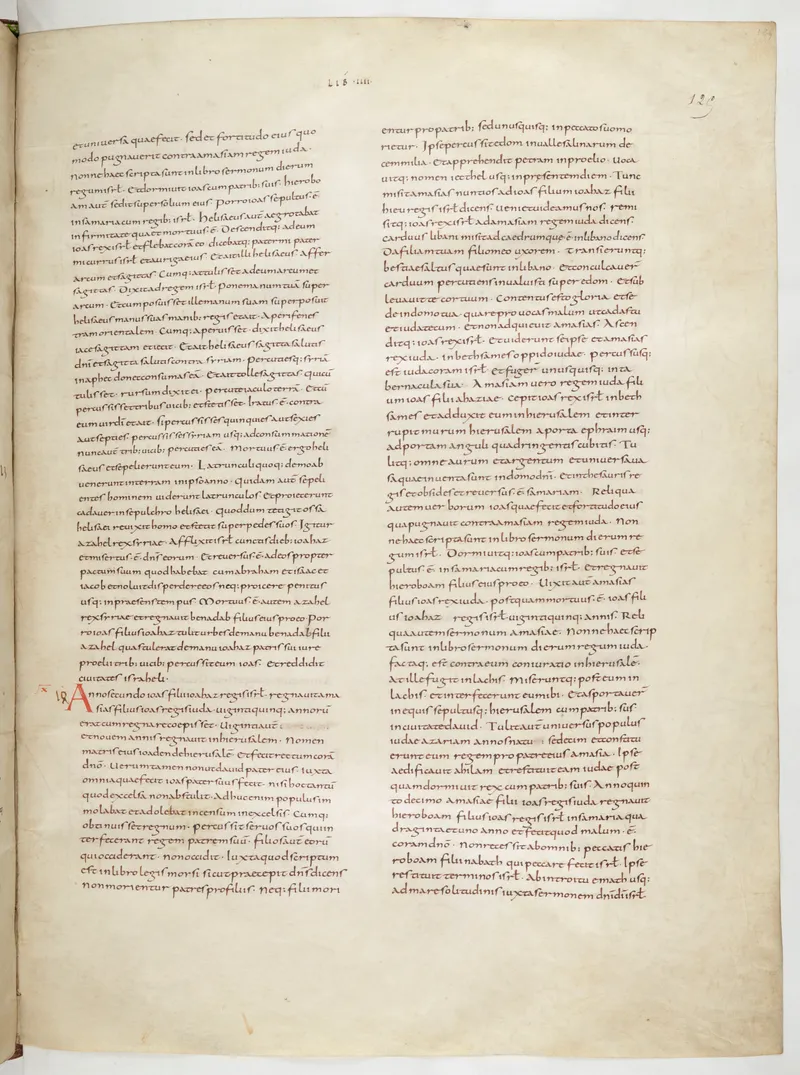 LIB · IIII ·
129
et uniuersa quae fecit · sed et fortitudo eius quo
modo pugnauerit contra amasiam regem iuda ·
Nonne haec scripta sunt in libro sermonum dierum
regum isrł · Et dormiuit ioas cum patrib; suis · hierobo
am aut̄ sedit super solium eius · Porro ioas sepultus · ē ·
in samaria cum regib; isrł · Helisaeus aut̄ aegrotabat
infirmitate qua et mortuus · ē · Descenditq; ad eum
ioas rex isrł · et flebat corā eo · dicebatq; pater mi pater
mi currus isrł · et auriga eius · Et ait illi helisaeus · Affer
arcum et sagittas · Cumq; attulisset ad eum arcum et
sagittas · Dixit ad regem isrł · Pone manum tuā super
arcum · Et cum posuisset ille manum suam superposuit
helisaeus manus suas manib; regis et ait · Aperi fenes
tram orientalem · Cumq; aperuisset · dixit helisaeus
iace sagittam et iecit · Et ait helisaeus sagitta salutis
dnī et sagitta salutis contra syriam · percutiesq; syriā
in aphec donec consumas eā · Et ait tolle sagittas · qui cū
tulisset · rursum dixit ei · percute iaculo terrā · Et cū
percussisset tribus uicib; et stetisset · Iratus · ē · contra
eum uir dī et ait · si percussisses quinquies aut sexies
aut septies · percussisses syriam usq; ad consummationē
nunc aut̄ trib; uicib; percuties eā · Mortuus · ē · ergo heli
saeus et sepelierunt eum · Latrunculi quoq; de moab
uenerunt in terram in ipso anno · Quidam aut̄ sepeli
entes hominem uiderunt latrunculos · Et proiecerunt
cadauer in sepulchro helisaei · quod dum tetigit ossa
helisaei reuixit homo et stetit super pedes suos · Igitur
azahel rex syriae · Afflixit isrł cunctis dieb; ioahaz
et misertus · ē · dn̄s eorum · Et reuersus · ē · ad eos propter
pactum suum quod habebat cum abraham et isaac et
iacob et noluit disperdere eos neq; proicere penitus
usq; in praesens tempus · Mortuus · ē · autem azahel
rex syriae et regnauit benadab filius eius pro eo · Por
ro ioas filius ioahaz tulit urbes de manu benadab filii
azahel quas tulerat de manu ioahaz patris sui iure
proelii trib; uicib; percussit eum ioas · et reddidit
ciuitates israheli ·
Anno secundo ioas filii ioahaz regis isrł · regnauit ama
sias filius ioas regis iuda · uiginti quinq; annorū
erat cum regnare coepisset · Uiginti aut̄
et nouem annis regnauit in hierusalem · Nomen
matris eius ioaden de hierusalē · Et fecit rectum corā
dnō · Uerum tamen non ut dauid pater eius · iuxta
omnia quae fecit ioas pater suus fecit · nisi hoc tantū
quod excelsa non abstulit · Adhuc enim populus im
molabat et adolebat incensum in excelsis · Cumq;
obtinuisset regnum · percussit seruos suos qui in
terfecerant regem patrem suū · filios aut̄ eorū
qui occiderant · non occidit · Iuxta quod scriptum
est in libro legis mosi sicut praecepit dn̄s dicens
Non morientur patres pro filiis · Neq; filii mori
entur pro patrib; sed unusquisq; in peccato suo mo
rietur · Ipse percussit edom in ualle salinarum de
cem milia · Et apprehendit petram in proelio · Uoca
uitq; nomen iecthel usq; in presentem diem · Tunc
misit amasias nuntios ad ioas filium ioahaz filii
hieu regis isrł dicens · Ueni et uideamus nos · remi
sitq; ioas rex isrł ad amasiam regem iuda dicens ·
carduus libani misit ad caedrum quae · ē · in libano dicens
Da filiam tuam filio meo uxorem · Transieruntq;
bestiae saltus quae sunt in libano · Et conculcauer̄
carduum percutiens inualuisti super edom · Et sub
leuauit te cor tuum · Contentus esto gloria et se
de in domo tua · quare prouocas malum ut cadas tu
et iudas tecum · Et non adquieuit amasias · Ascen
ditq; ioas rex isrł · Et uiderunt se ipse et amasias
rex iuda · in bethsames oppido iudae · percussusq;
est iuda coram isrł · et fuger̄ unusquisq; in ta
bernacula sua · Amasiam uero regem iuda fili
um ioas filii ahaziae · cepit ioas rex isrł in beth
sames · et adduxit eum in hierusalem et inter
rupit murum hierusalem a porta ephraim usq;
ad portam anguli quadringentis cubitis · Tu
litq; omne aurum et argentum et uniuersa ua
sa quae inuenta sunt in domo dnī · Et in thesauris re
gis et obsides et reuersus · ē · samariam · Reliqua
autem uerborum ioas quae fecit et fortitudo eius
qua pugnauit contra amasiam regem iuda · Non
ne haec scripta sunt in libro sermonum dierum re
gum isrł · Dormiuitq; ioas cum patrib; suis et se
pultus · ē · in samaria cum regib; isrł · Et regnauit
hieroboam filius eius pro eo · Uixit aut̄ amasias
filius ioas rex iuda · postquam mortuus · ē · ioas fili
us ioahaz regis isrł · uiginti quinq; annis · Reli
qua autem sermonum amasiae · Nonne haec scrip
ta sunt in libro sermonum dierum regum iuda ·
factaq; est contra eum coniuratio in hierusalē ·
At ille fugit in lachis · Miseruntq; post eum in
lachis et interfecerunt eum ibi · Et asportauer̄
in equis sepultusq; hierusalem cum patrib; suis
in ciuitate dauid · Tulit aut̄ uniuersus populus
iudae azariam annos natu sedecim et constitu
erunt eum regem pro patre eius amasia · Ipse
aedificauit ahilam et restituit eam iudae post
quam dormiuit rex cum patrib; suis · Anno quin
to decimo amasiae filii ioas regis iuda regnauit
hieroboam filius ioas regis isrł in samaria qua
draginta et uno anno et fecit quod malum · ē ·
coram dnō · Non recessit ab omnib; peccatis hie
roboam filii nabath qui peccare fecit isrł · Ipse
restituit terminos isrł · Ab introitu emath usq;
ad mare solitudinis iuxta sermonem dnī dī isrł ·